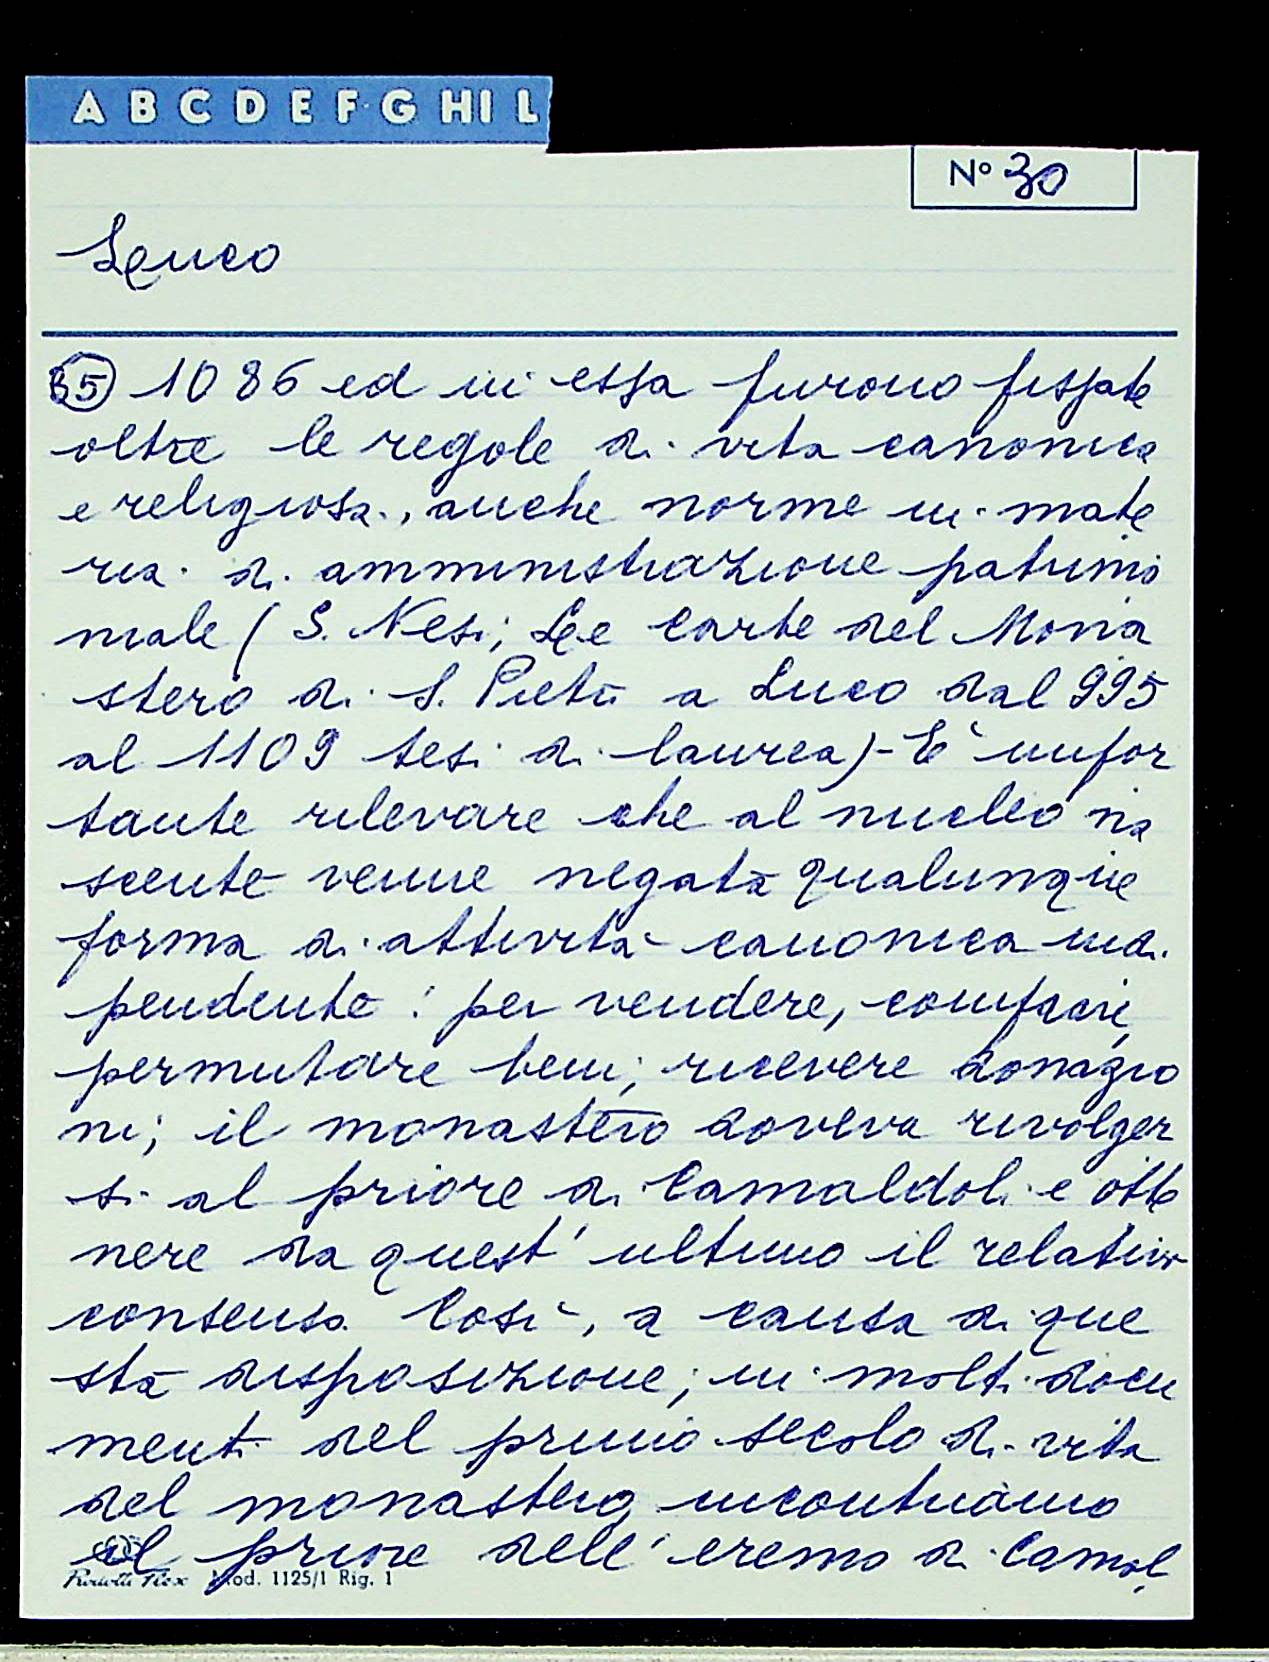 A B C D E F G H I L
N° 30
Leuco
35 1086 ed in essa furono fissate
oltre le regole di vita canonica
e religiosa, anche norme in mate
ria di amministrazione patrimo
niale ( S. Nesi; Le Carte del Mona
stero di S. Pietro a Luco dal 995
al 1109 tesi di laurea)- E' impor
tante rilevare che al nucleo na
scente venne negata qualunque
forma di attività canonica indi
pendente : per vendere, comprare,
permutare beni; ricevere donazio
ni; il monastero doveva rivolger
si al priore di Camaldoli e otte
nere da quest' ultimo il relativo
consenso. Così, a causa di que
sta disposizione; in molti docu
menti del primo secolo di vita
del monastero, incontriamo
il priore dell' eremo di Camal
Mod. 1125/1 Rig. 1